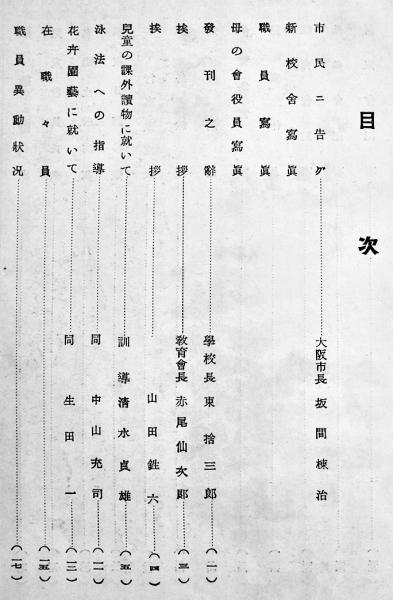 目次
市民ニ告グ……大阪市長 坂間棟治
新校舍寫眞
職員寫眞
母の會役員寫眞
發刊之辭……學校長 東捨三郎……(一)
挨拶……敎育會長 赤尾仙次郎……(三)
挨拶……山田銈六……(四)
兒童の課外讀物に就いて……訓導 淸水貞雄……(五)
泳法への指導……同 中山充司……(一一)
花卉園藝に就いて……同 生田一……(一三)
在職々員……(一五)
職員異動狀况……(一七)